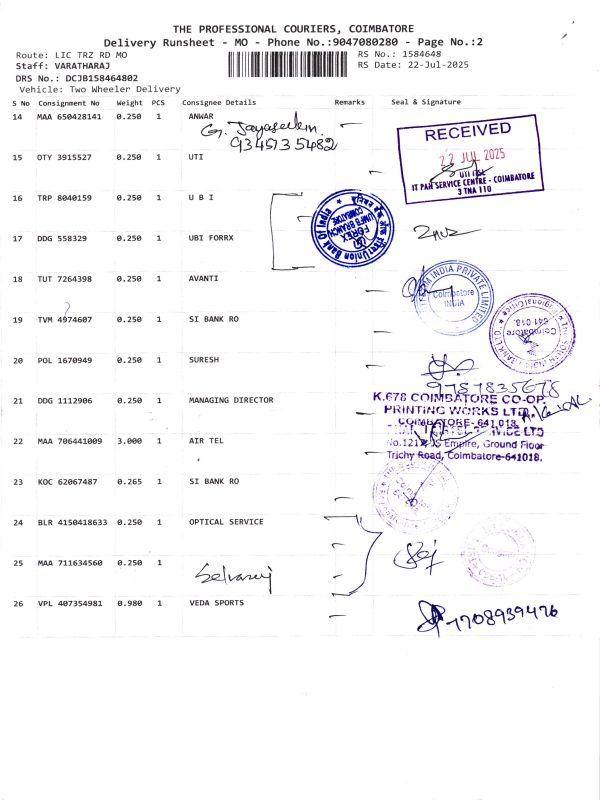 THE PROFESSIONAL COURIERS, COIMBATORE
Delivery Runsheet - MO - Phone No.:9047080280 - Page No.:2
Route: LIC TRZ RD MO
RS No.: 1584648
Staff: VARATHARAJ
RS Date: 22-Jul-2025
DRS No.: DCJB158464802
Vehicle: Two Wheeler Delivery
S No Consignment No Weight PCS Consignee Details Remarks Seal & Signature
14 MAA 650428141 0.250 1 ANWAR
G. Jayaseelan
9345135482
RECEIVED
22 JUL 2025
IT PAN SERVICE CENTRE - COIMBATORE
3 TNA 110
15 OTY 3915527 0.250 1 UTI
16 TRP 8040159 0.250 1 U B I
Union Bank Of India
FOREX
COIMBATORE
17 DDG 558329 0.250 1 UBI FORRX
18 TUT 7264398 0.250 1 AVANTI
INDIA PRIVATE LIMITED
Coimbatore
INDIA
19 TVM 4974607 0.250 1 SI BANK RO
Regional Office
Coimbatore
641 018.
20 POL 1670949 0.250 1 SURESH
9787835678
21 DDG 1112906 0.250 1 MANAGING DIRECTOR
K.678 COIMBATORE CO-OP.
PRINTING WORKS LTD.
COIMBATORE-641 018.
22 MAA 706441009 3.000 1 AIR TEL
Empire, Ground Floor
Trichy Road, Coimbatore-641018.
23 KOC 62067487 0.265 1 SI BANK RO
24 BLR 4150418633 0.250 1 OPTICAL SERVICE
25 MAA 711634560 0.250 1
Selvaraj
26 VPL 407354981 0.980 1 VEDA SPORTS
7708939476